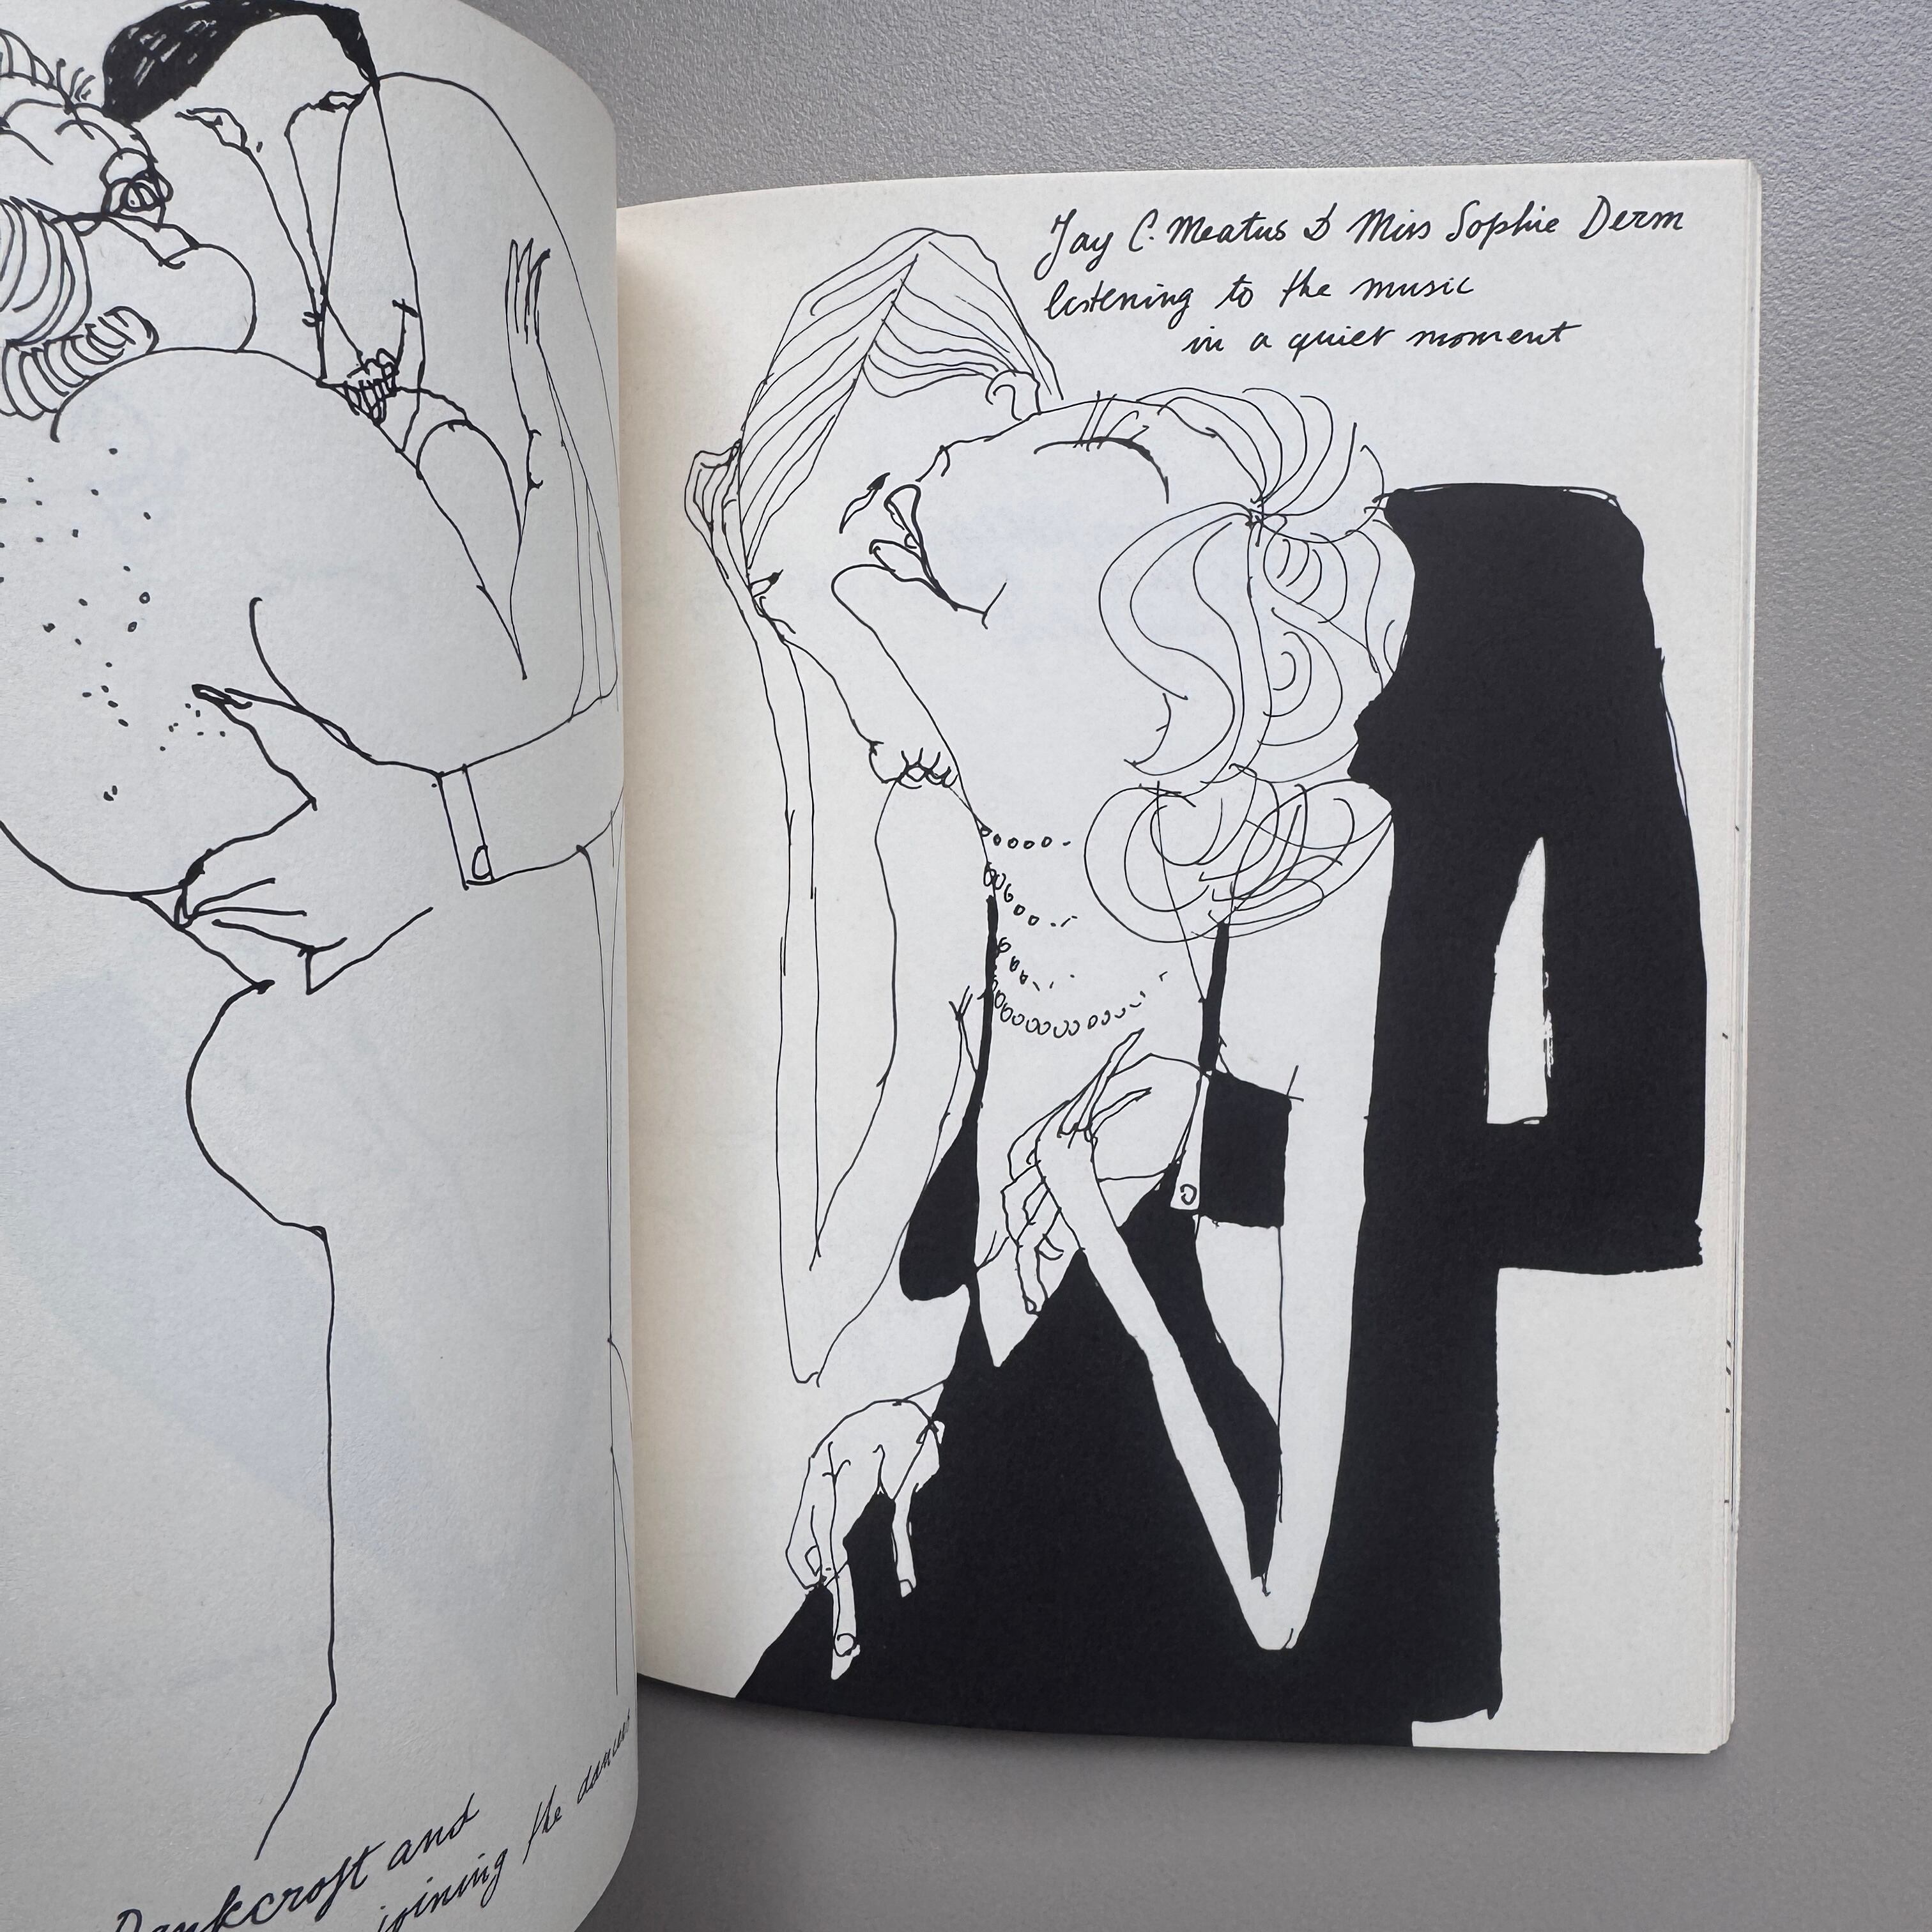 Dankcroft and
joining the dances
Jay C. Meatus & Miss Sophie Derm
listening to the music
in a quiet moment